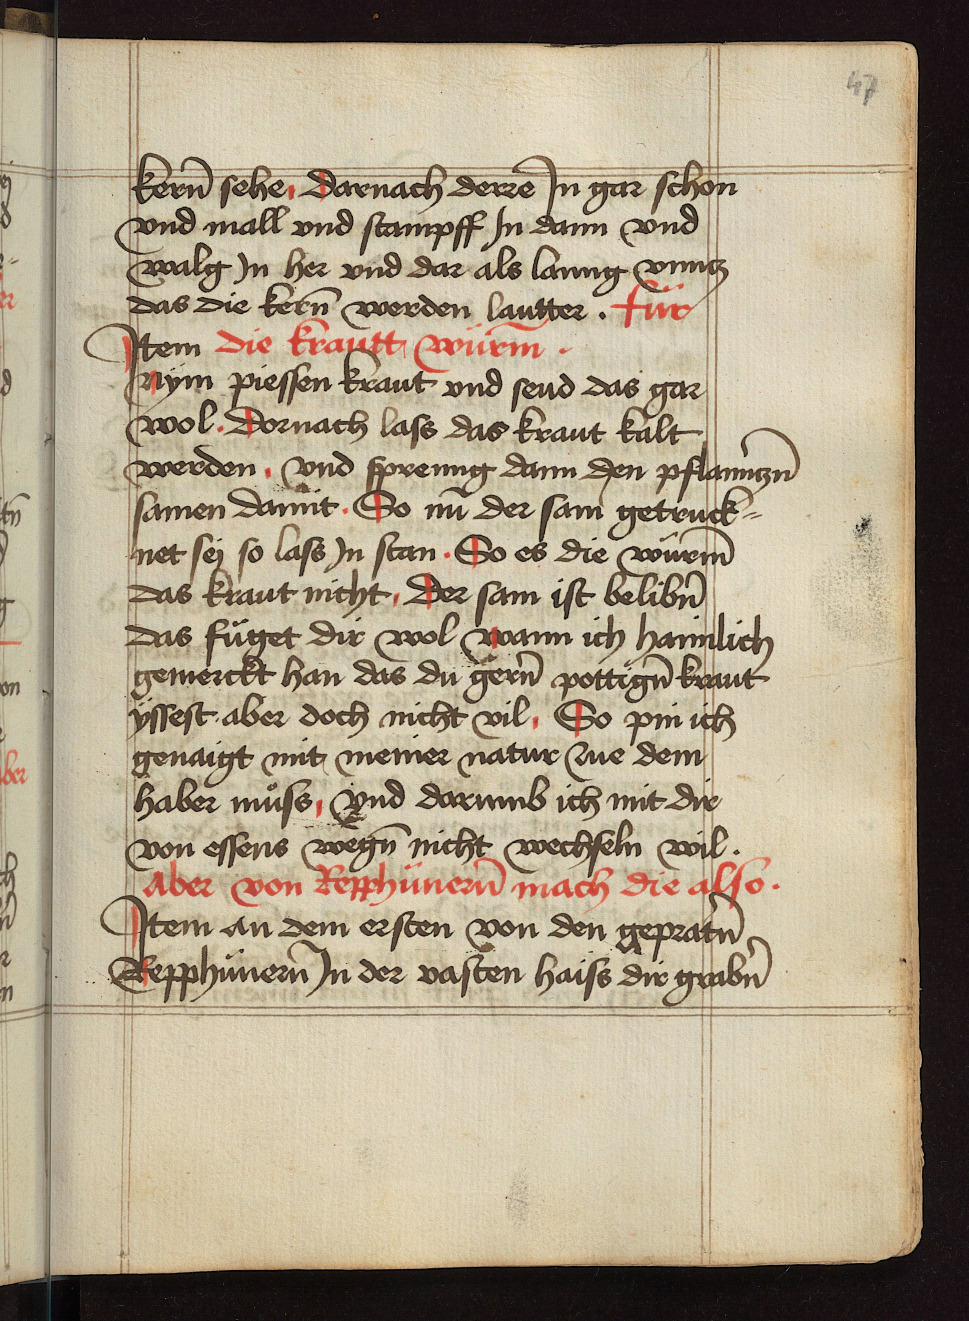 47
kern̄ sehe. Darnach derre In gar schon
vnd mall vnd stampff In dann vnd
walg In her vnd dar als lanng vnntz
das die kern̄ werden lautter. für
Item die krautt würm̄.
Nÿm piessen kraut vnd seud das gar
wol. Dornach lass das kraut kalt
werden. vnd spreung dann den pflanntzn̄
samen damit. So nū der sam getruck=
net seÿ so lass In stan. So es die würm̄
das kraut nicht. Der sam ist belibn̄
das füget dir wol wann ich haimlich
gemerckt han das du gern̄ pottign̄ kraut
ÿssest aber doch nicht vil. So pin ich
genaigt mit meiner natur zue dem
haber muͦss. Vnd darumb ich mit dir
von essens wegn̄ nicht wechseln wil.
Aber von Repphünern̄ mach die also.
Item an dem ersten von den gepratn̄
Repphünern̄ In der vasten haiss dir grabn̄